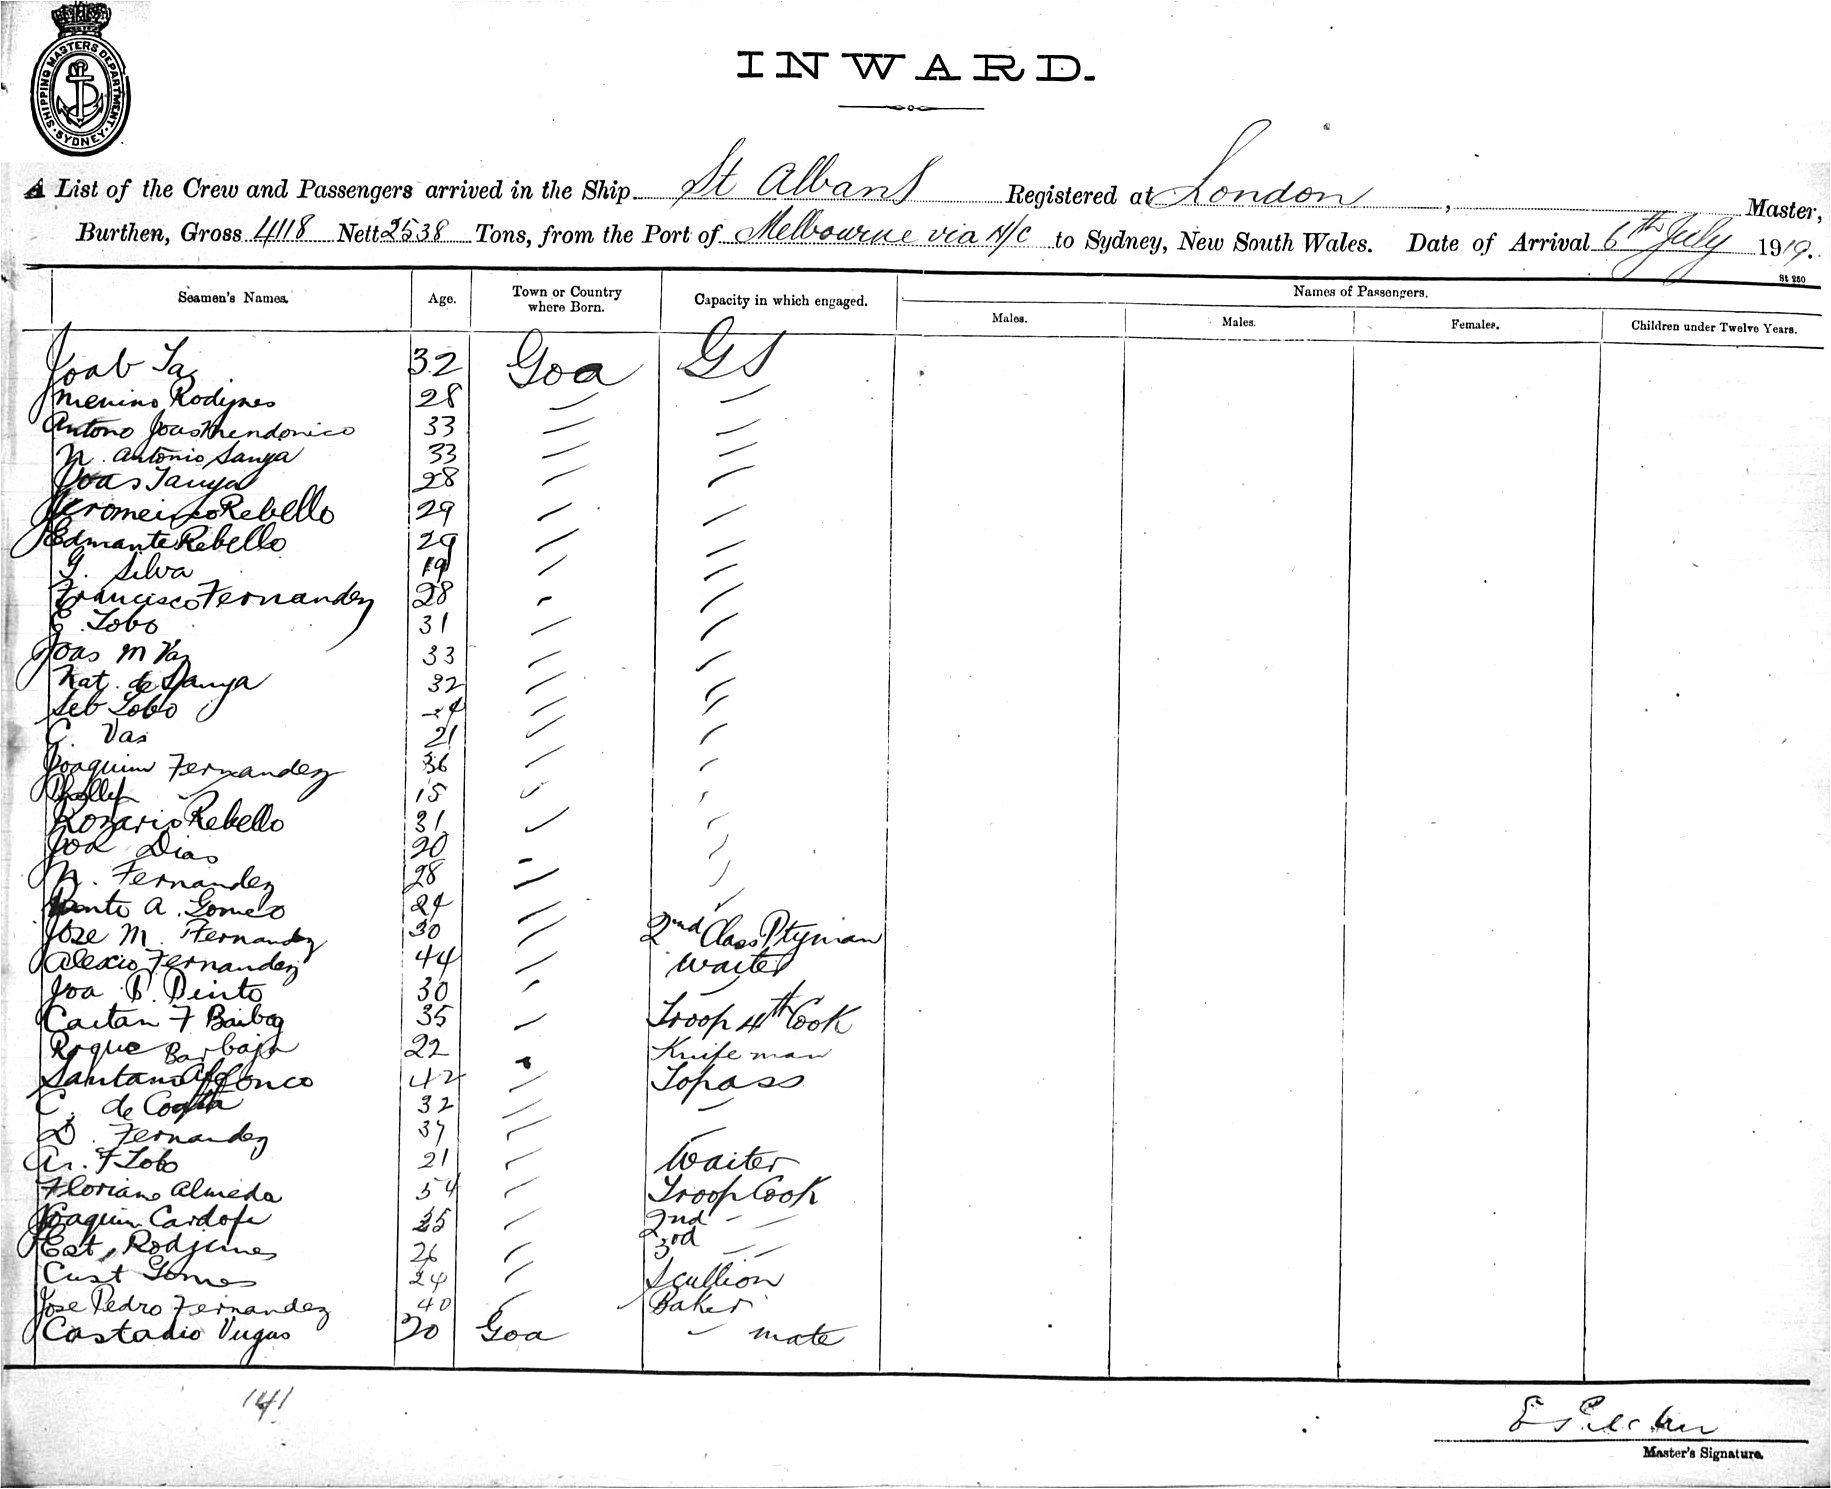 SHIPPING MASTERS DEPARTMENT
SYDNEY
INWARD.
A List of the Crew and Passengers arrived in the Ship St Albans Registered at London, Master,
Burthen, Gross 4118 Nett 2538 Tons, from the Port of Melbourne via N/C to Sydney, New South Wales. Date of Arrival 6th July 1919.
St 250
Seamen's Names. Age. Town or Country where Born. Capacity in which engaged. Names of Passengers.
Males. Males. Females. Children under Twelve Years.
32 Goa GS
Menino 28 — —
Antono Joas Mendonico 33 — —
N. Antonio Sanya 33 — —
Joas 28 — —
Rebello 29 — —
Edmante Rebello 29 — —
G. Silva 19 — —
Francisco Fernandez 28 - —
E. Lobo 31 — —
Joas M Vaz 33 — —
Nat. de Sanya 32 — —
Seb Lobo — —
C. Vas 21 — —
Joaquim Fernandez 36 — —
15 — —
Rozario Rebello 31 — —
Joa Dias 20 - —
N. Fernandez 28 — —
A. Gomes 24 — —
Jose M. Fernandez 30 — 2nd Class Ptyman
Alexio Fernandez 44 — Waiter
Joa P. Pinto 30 — —
Caetan F 35 — Troop 4th Cook
Roque Barbaja 22 - Knife man
Santano Affonco 42 — Topass
C. de Costa 32 — —
D. Fernandez 37 — —
An. F Lobo 21 — Waiter
Floriano Almeda 54 — Troop Cook
Joaquim 25 — 2nd — —
Est. 26 — 3rd — —
Cust Gomes 24 — Scullion
Jose Pedro Fernandez 40 — Baker
Castadio 20 Goa — mate
141
Master's Signature.